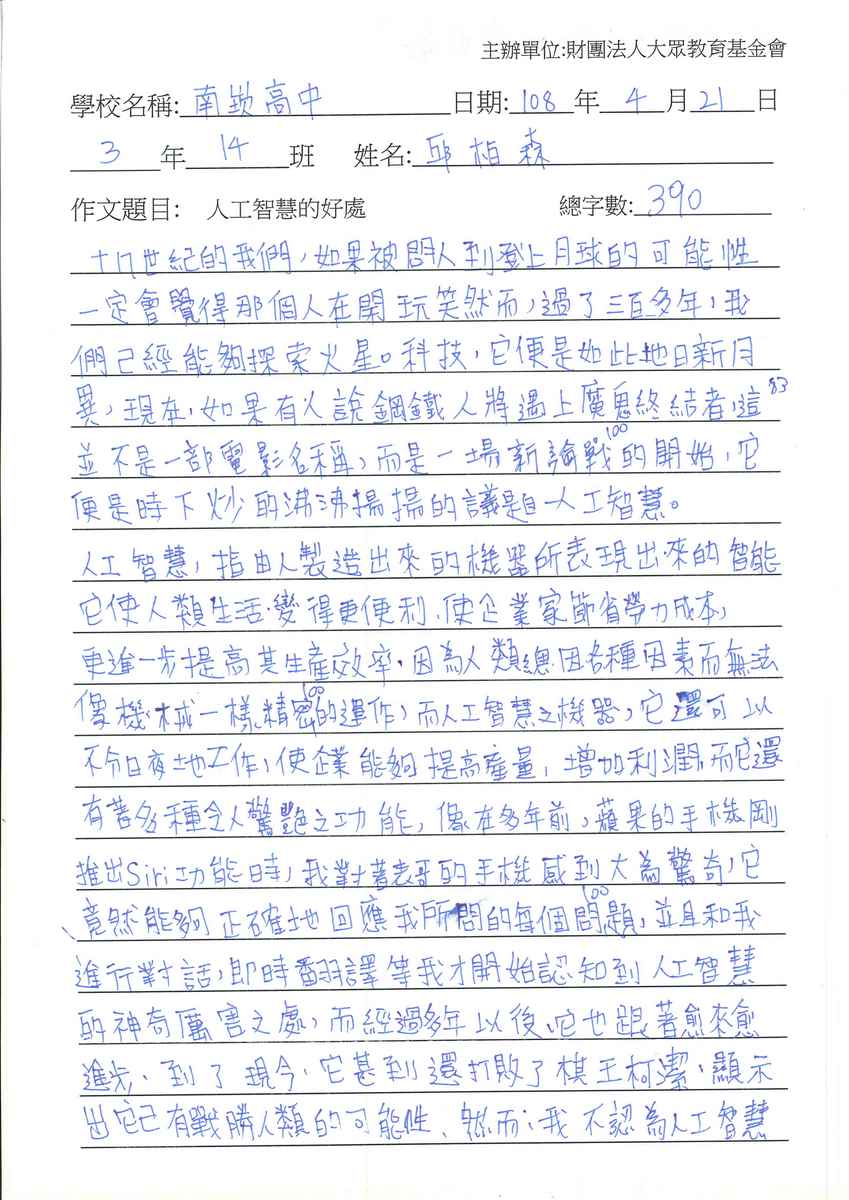 主辦單位:財團法人大眾教育基金會
學校名稱: 南崁高中 日期: 108 年 4 月 21 日
3 年 14 班 姓名: 邱柏森
作文題目: 人工智慧的好處 總字數: 390
十八世紀的我們,如果被問人到登上月球的可能性
一定會覺得那個人在開玩笑然而,過了三百多年,我
們已經能夠探索火星。科技,它便是如此地日新月
異,現在,如果有人說鋼鐵人將遇上魔鬼終結者,這 93
並不是一部電影名稱,而是一場新論戰的開始,它 100
便是時下炒的沸沸揚揚的議題人工智慧。
人工智慧,指由人製造出來的機器所表現出來的智能
它使人類生活變得更便利,使企業家節省勞力成本,
更進一步提高其生產效率,因為人類總因各種因素而無法
像機械一樣精密的運作,而人工智慧之機器,它還可以 100
不分日夜地工作,使企業能夠提高產量,增加利潤,而它還
有著多種令人驚艷之功能,像在多年前,蘋果的手機剛
推出Siri功能時,我對著表哥的手機感到大為驚奇,它
竟然能夠正確地回應我所問的每個問題,並且和我 100
進行對話,即時翻譯等我才開始認知到人工智慧
的神奇厲害之處,而經過多年以後,它也跟著愈來愈
進步,到了現今,它甚到還打敗了棋王柯潔,顯示
出它已有戰勝人類的可能性、然而;我不認為人工智慧